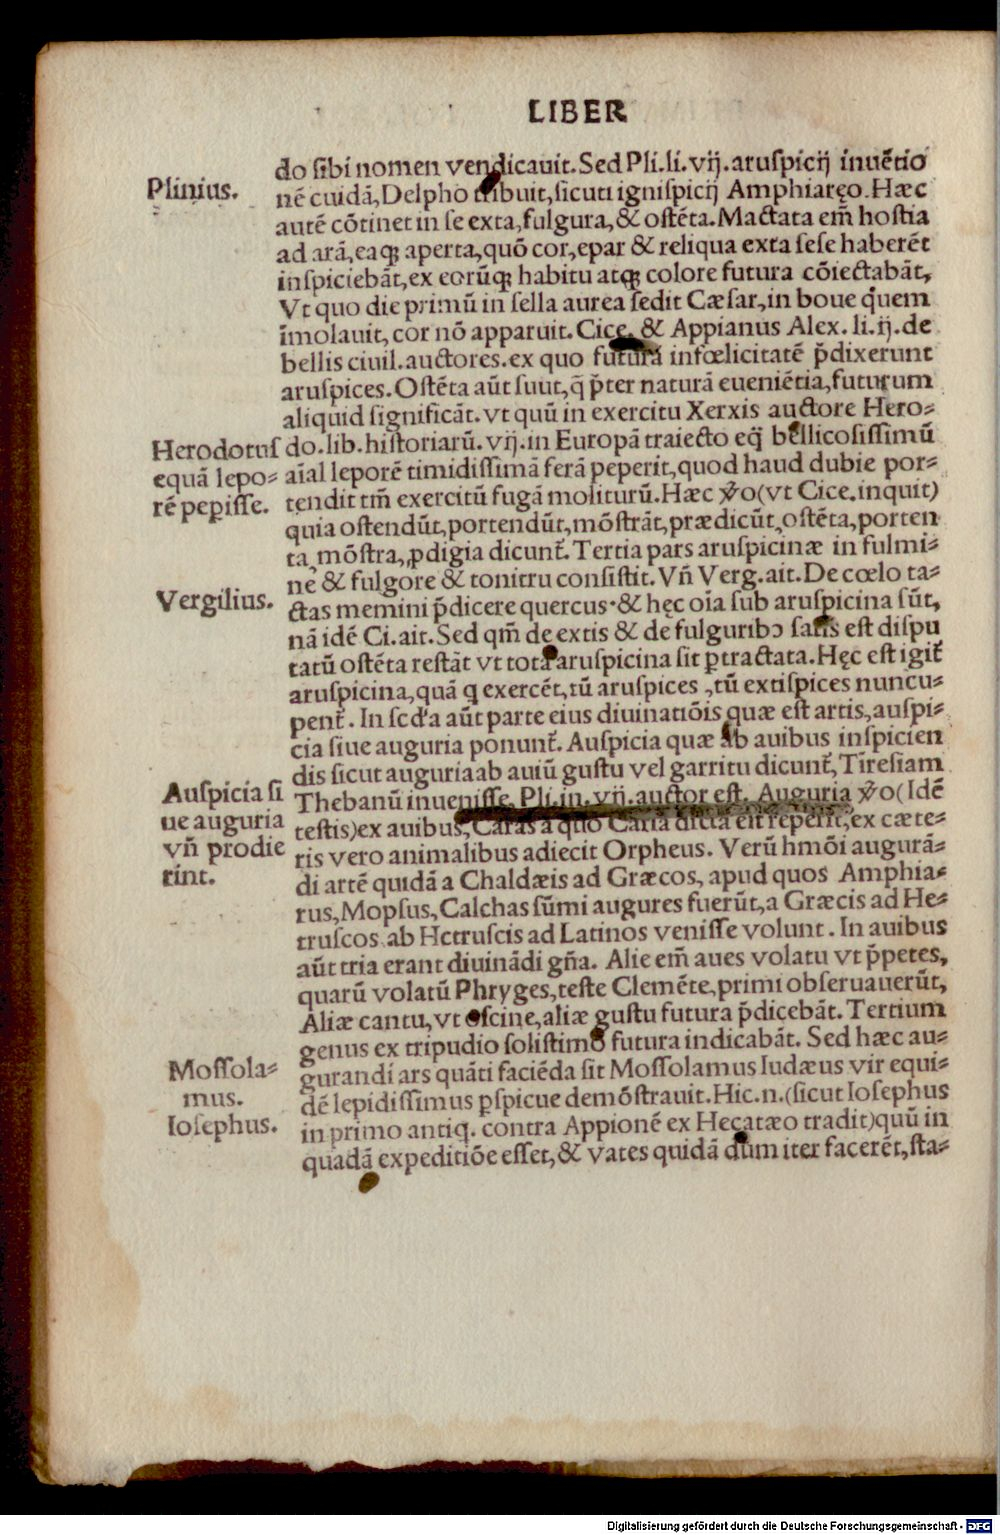 LIBER
do sibi nomen vendicauit. Sed Pli. li. vij. aruspicij inuẽtio
Plinius.
nẽ cuidã, Delpho tribuit, sicuti ignispicij Amphiaręo. Hæc
autẽ cõtinet in se exta, fulgura, & ostẽta. Mactata em̃ hostia
ad arã, eaqꝫ aperta, quõ cor, epar & reliqua exta sese haberẽt
inspiciebãt, ex eorũqꝫ habitu atqꝫ colore futura cõiectabãt,
Vt quo die primũ in sella aurea sedit Cæsar, in boue q̃uem
ĩmolauit, cor nõ apparuit. Cice. & Appianus Alex. li. ij. de
bellis ciuil. auctores. ex quo futurã infœlicitatẽ p̃dixerunt
aruspices. Ostẽta aũt suut, q̃ p̃ter naturã eueniẽtia, futurum
aliquid significãt. vt quũ in exercitu Xerxis auctore Hero-
Herodotus
equã lepo-
rẽ peperisse.
do. lib. historiarũ. vij. in Europã traiecto eq̃ bellicosissimũ
aĩal leporẽ timidissimã ferã peperit, quod haud dubie por-
tendit tm̃ exercitũ fugã moliturũ. Hæc v̉o (vt Cice. inquit)
quia ostendũt, portendũt, mõstrãt, prædicũt, ostẽta, porten
ta, mõstra, ꝓdigia dicunt̃. Tertia pars aruspicinæ in fulmi-
nẽ & fulgore & tonitru consistit. Vñ Verg. ait. De cœlo ta-
Vergilius.
ctas memini p̃dicere quercus. & hęc oĩa sub aruspicina sũt,
nã idẽ Ci. ait. Sed qm̃ de extis & de fulguribꝰ satis est dispu
tatũ ostẽta restãt vt tota aruspicina sit ꝑtractata. Hęc est igit̃
aruspicina, quã q exercẽt, tũ aruspices, tũ extispices nuncu-
pent̃. In scd'a aũt parte eius diuinatiõis quæ est artis, auspi-
cia siue auguria ponunt̃. Auspicia quæ ab auibus inspicien
dis sicut auguria ab auiũ gustu vel garritu dicunt̃, Tiresiam
Auspicia si
ue auguria
vñ prodie
rint.
Thebanũ inuenisse, Pli. in. vij. auctor est. Auguria v̉o (Idẽ
testis) ex auibus, Caras a quo Caria dicta est reperit, ex cæte-
ris vero animalibus adiecit Orpheus. Verũ hmõi augurã-
di artẽ quidã a Chaldæis ad Græcos, apud quos Amphia-
rus, Mopsus, Calchas sũmi augures fuerũt, a Græcis ad He-
truscos ab Hetruscis ad Latinos venisse volunt. In auibus
aũt tria erant diuinãdi gña. Alie em̃ aues volatu vt p̃petes,
quarũ volatũ Phryges, teste Clemẽte, primi obseruauerũt,
Aliæ cantu, vt oscine, aliæ gustu futura p̃dicebãt. Tertium
genus ex tripudio solistimo futura indicabãt. Sed hæc au-
Mossola-
mus.
Iosephus.
gurandi ars quãti faciẽda sit Mossolamus Iudæus vir equi-
dẽ lepidissimus ꝑspicue demõstrauit. Hic. n. (sicut Iosephus
in primo antiq. contra Appionẽ ex Hecatæo tradit) quũ in
quadã expeditiõe esset, & vates quidã dum iter facerẽt, sta-
Digitalisierung gefördert durch die Deutsche Forschungsgemeinschaft - DFG